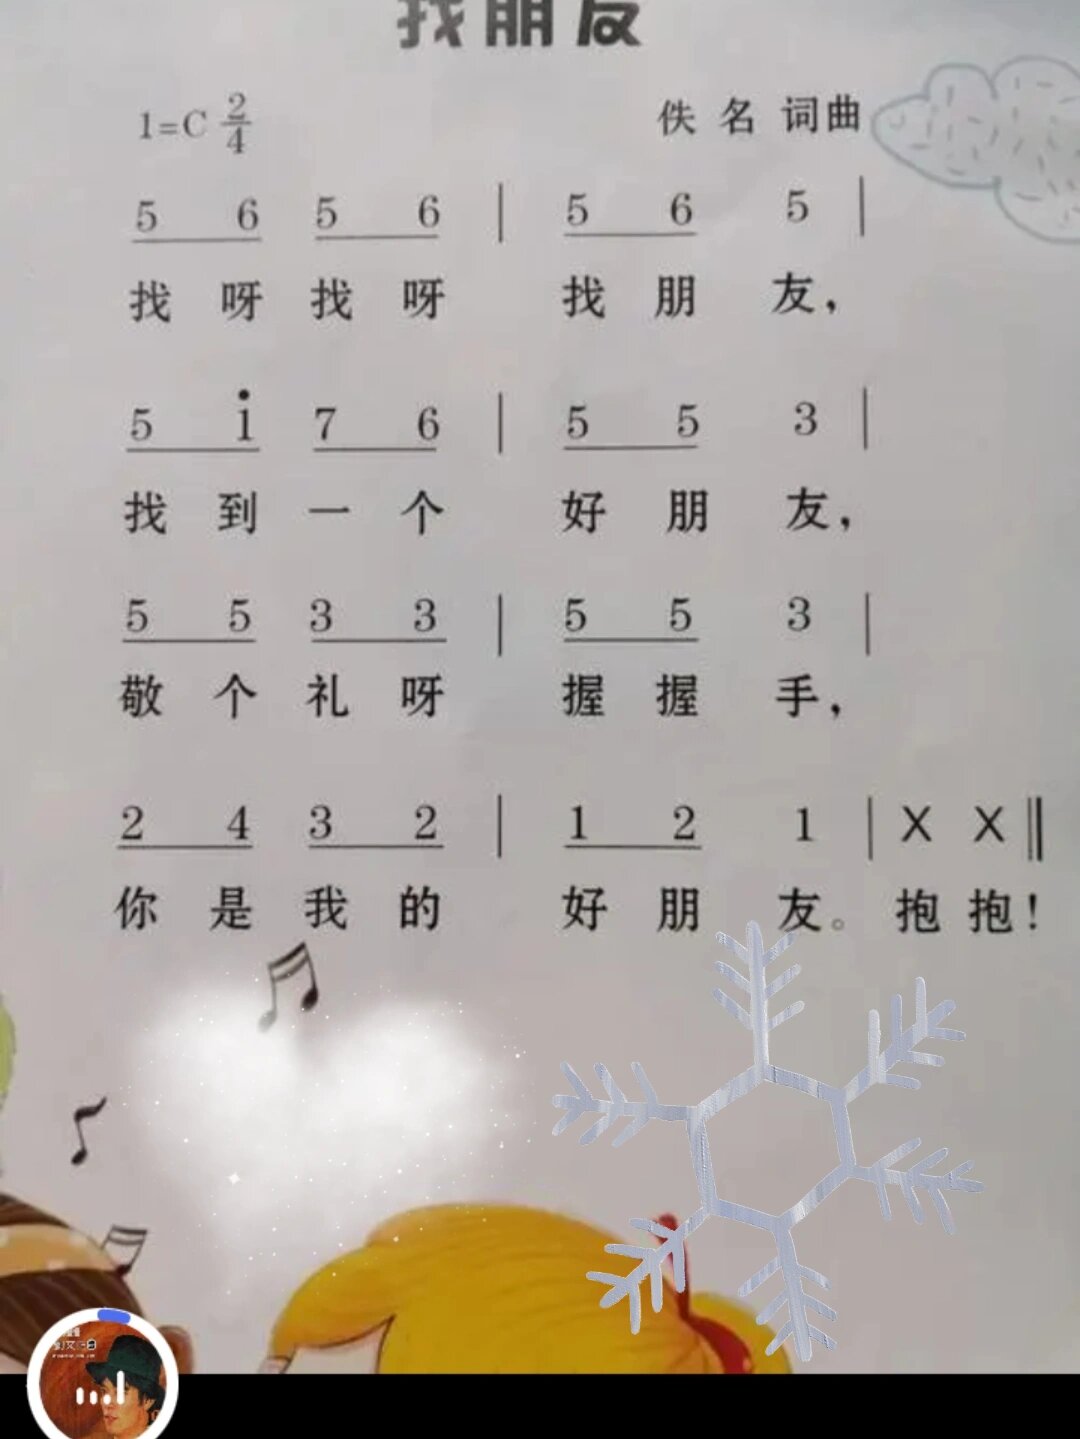 找朋友
1=C 2/4 佚 名 词曲
5 6 5 6 | 5 6 5 |
找 呀 找 呀 找 朋 友，
5 i̇ 7 6 | 5 5 3 |
找 到 一 个 好 朋 友，
5 5 3 3 | 5 5 3 |
敬 个 礼 呀 握 握 手，
2 4 3 2 | 1 2 1 | X X ‖
你 是 我 的 好 朋 友。 抱 抱！